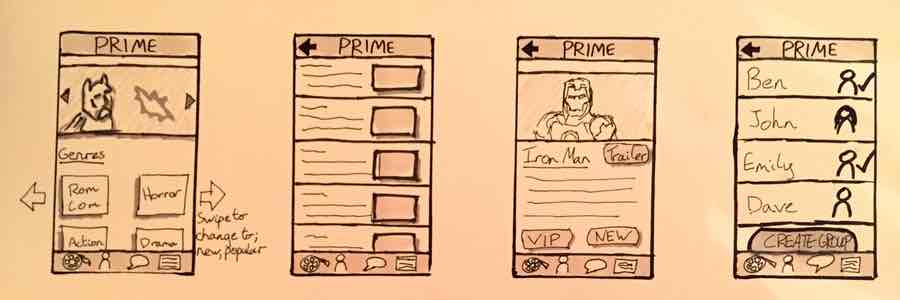 PRIME
Genres
Rom
Com
Horror
Action
Drama
Swipe to
change to;
new, popular
PRIME
PRIME
Iron Man
Trailer
VIP
NEW
PRIME
Ben
John
Emily
Dave
CREATE GROUP